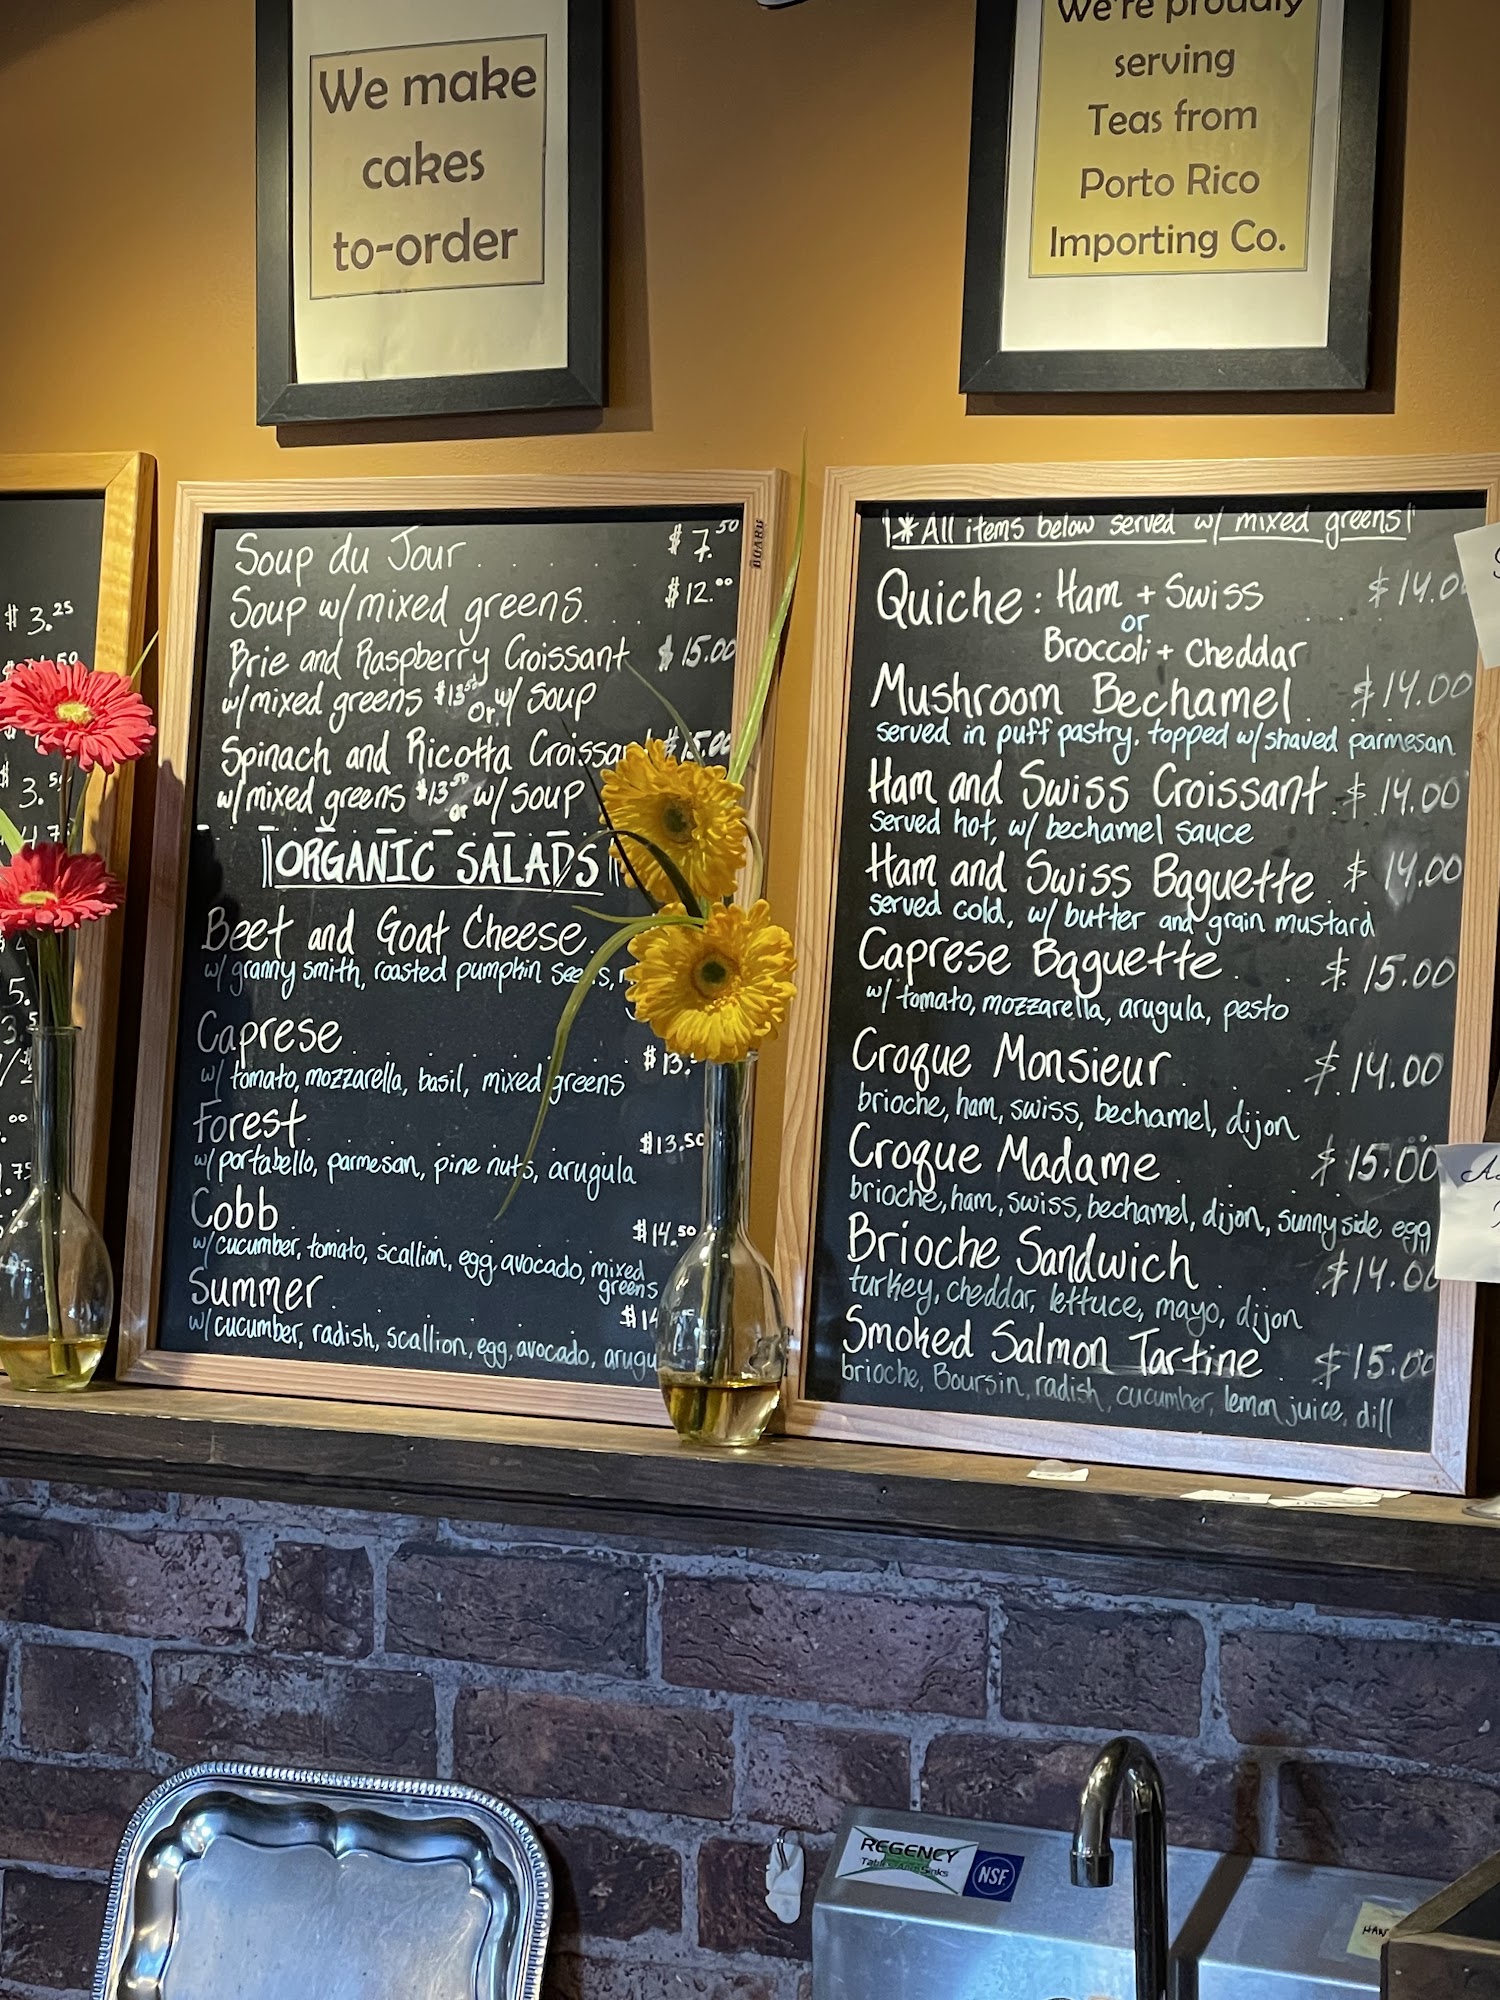 We make
cakes
to-order
We're proudly
serving
Teas from
Porto Rico
Importing Co.
$3.25
Soup du Jour $7.50
Soup w/ mixed greens $12.00
Brie and Raspberry Croissant $15.00
w/ mixed greens $13.50 or w/ soup
Spinach and Ricotta $15.00
w/ mixed greens $13.50 or w/ soup
ORGANIC SALADS
Beet and Goat Cheese
w/ granny smith, roasted pumpkin
Caprese
w/ tomato, mozzarella, basil, mixed greens
Forest $13.50
w/ portabello, parmesan, pine nuts, arugula
Cobb $14.50
w/ cucumber, tomato, scallion, egg, avocado, mixed
greens
Summer
w/ cucumber, radish, scallion, egg, avocado,
BOARD
*All items below served w/ mixed greens
Quiche: Ham + Swiss $14.00
or
Broccoli + Cheddar
Mushroom Bechamel $14.00
served in puff pastry, topped w/ shaved parmesan
Ham and Swiss Croissant $14.00
served hot, w/ bechamel sauce
Ham and Swiss Baguette $14.00
served cold, w/ butter and grain mustard
Caprese Baguette $15.00
w/ tomato, mozzarella, arugula, pesto
Croque Monsieur $14.00
brioche, ham, swiss, bechamel, dijon
Croque Madame $15.00
brioche, ham, swiss, bechamel, dijon, sunny side egg
Brioche Sandwich $14.00
turkey, cheddar, lettuce, mayo, dijon
Smoked Salmon Tartine $15.00
brioche, Boursin, radish, cucumber, lemon juice, dill
REGENCY
Tables and Sinks
NSF